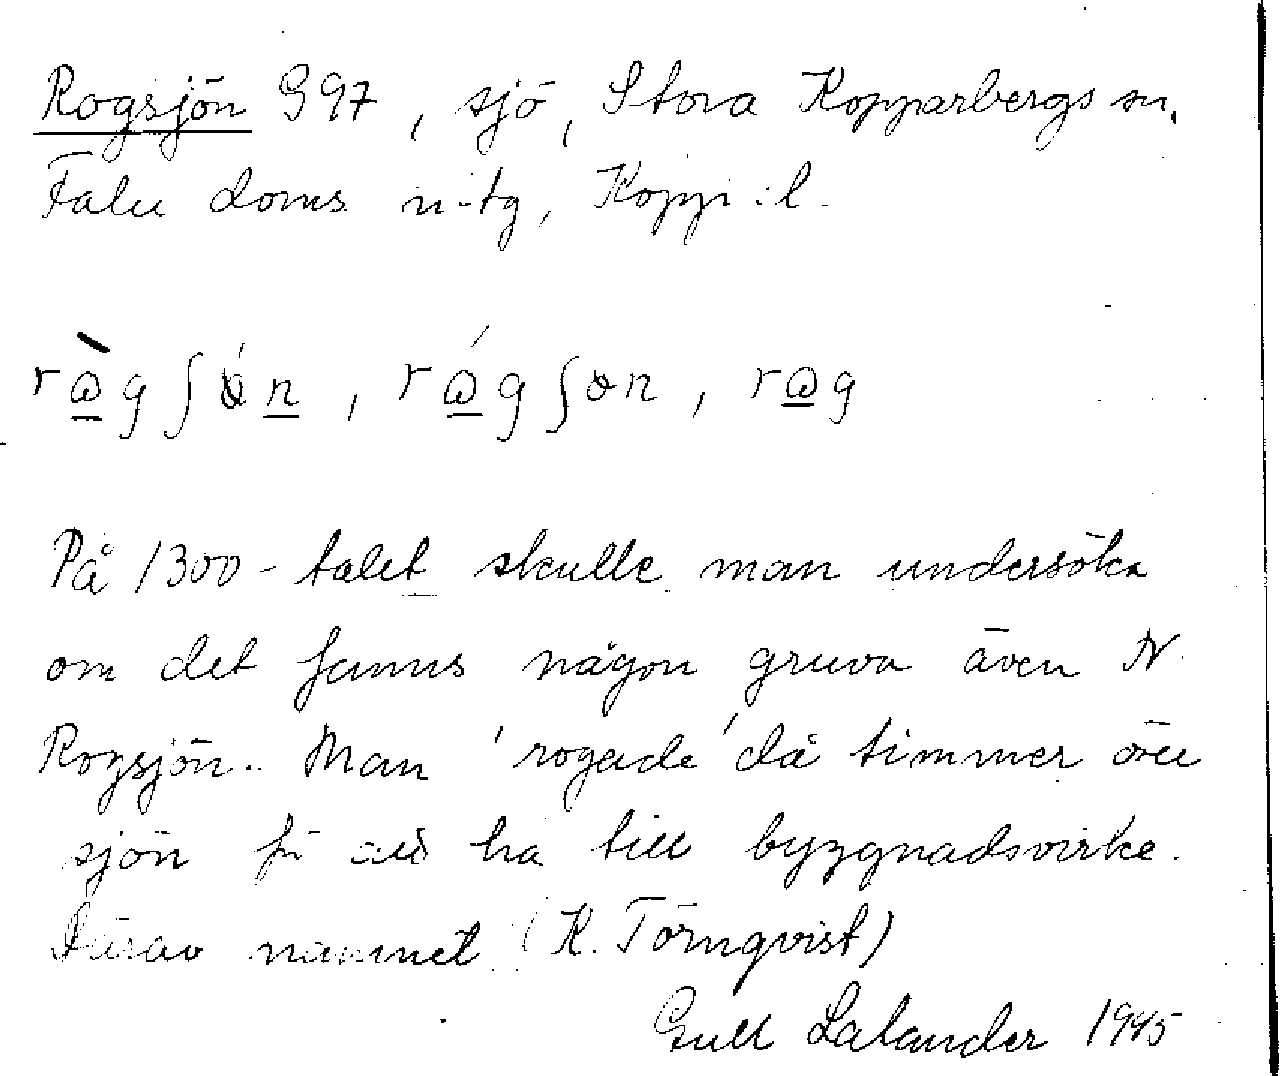 Rogsjön G 97, sjö, Stora Kopparbergs sn.
Falu doms. n-tg, Kopp:l.
På 1300-talet skulle man undersöka
om det fanns någon gruva även N.
Rogsjön. Man 'rogade' då timmer över
sjön att ha till byggnadsvirke.
Därav namnet (K. Törnqvist)
Gull Lalander 1945